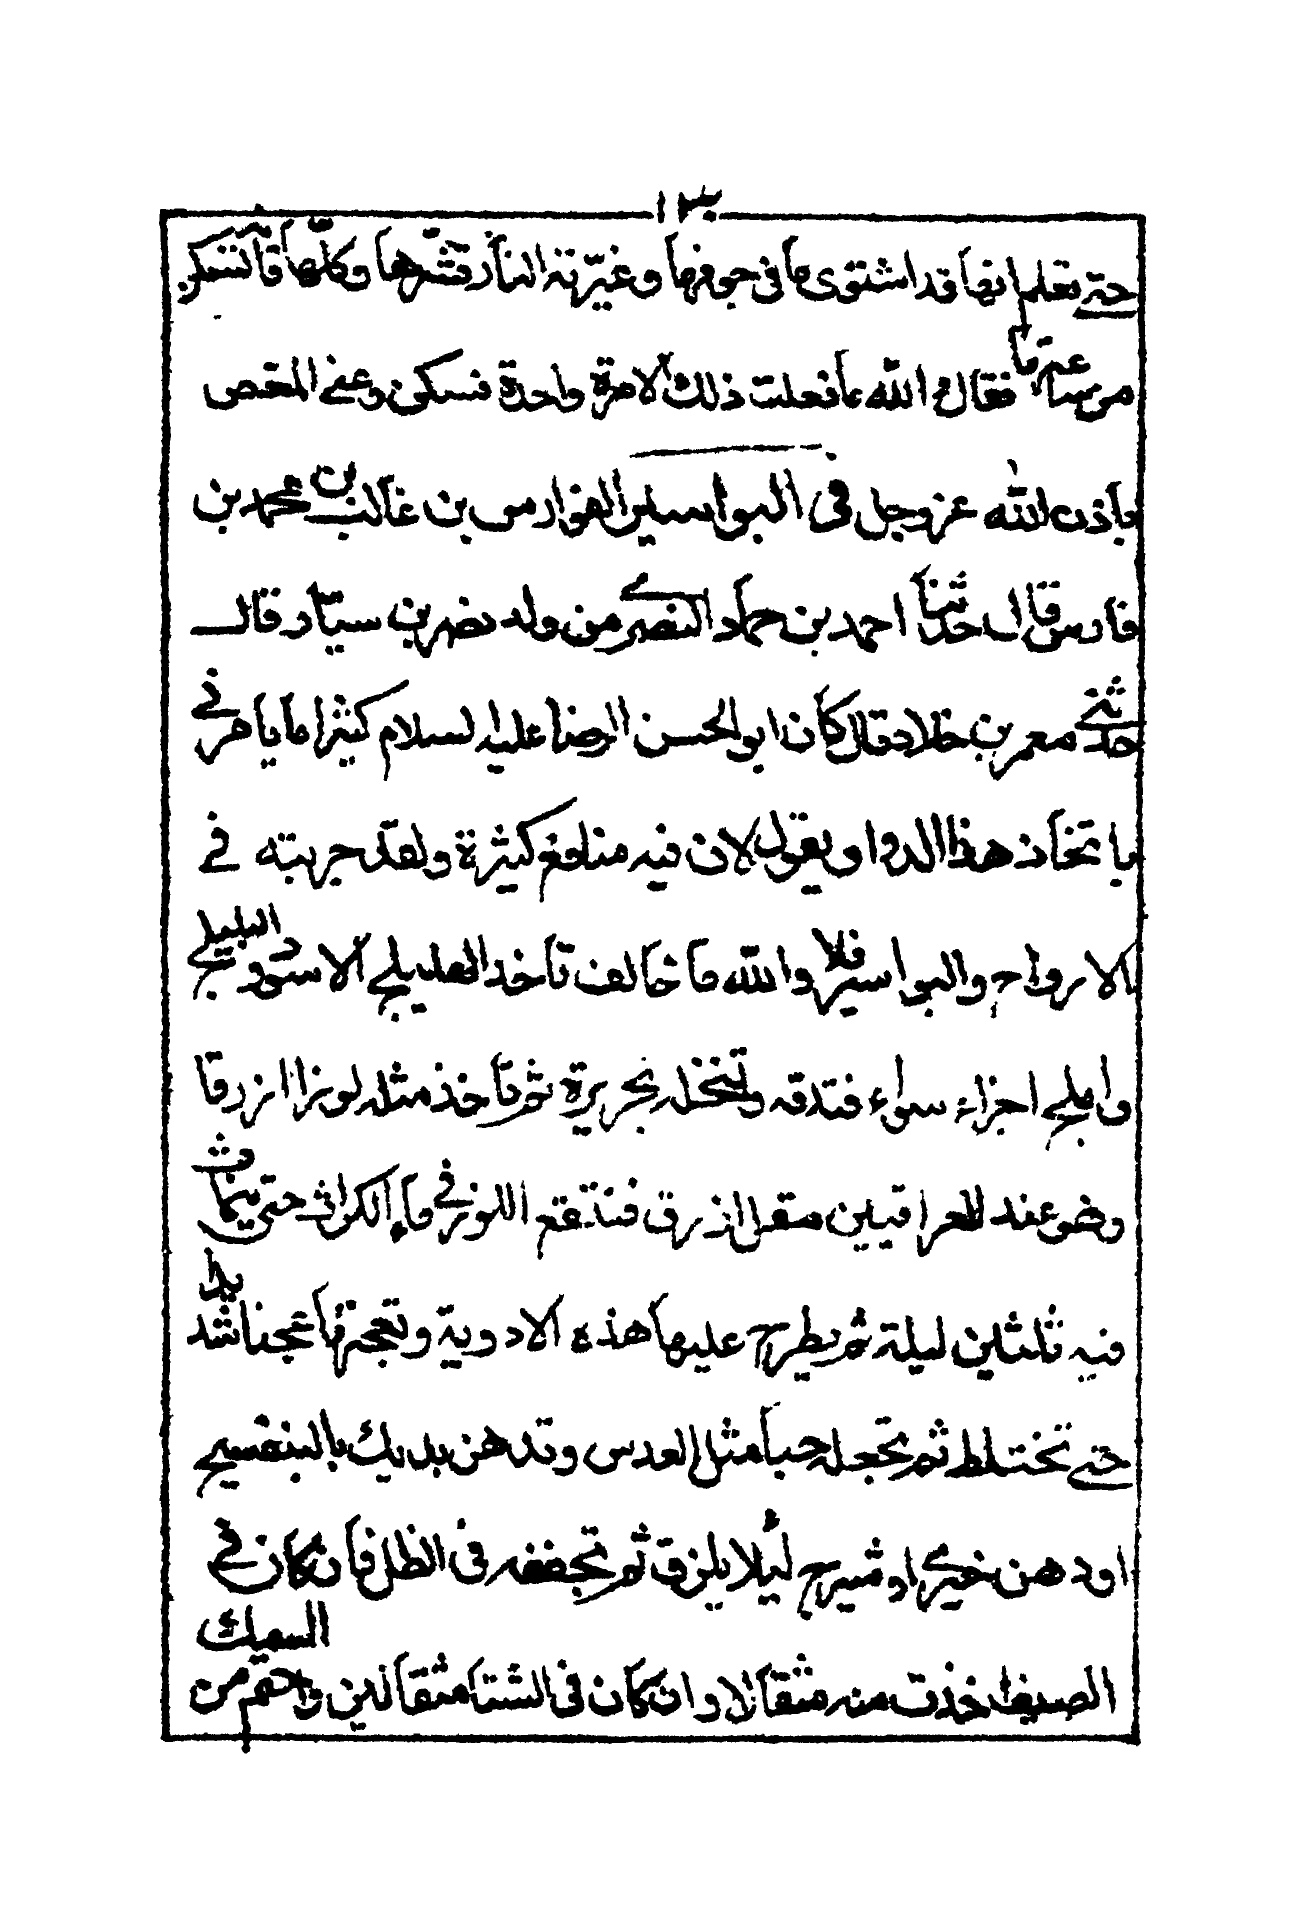 حتى تعلم انها قد اشتوى ما فى جوفها وغيرته النار قشرها وكلها فانها تسكن
من ساعته فقال والله ما فعلت ذلك الا مرة واحدة فسكن وعنى المغص
باذن الله عز وجل فى البواسير الفوارس بن غالب بن محمد بن
فارس قال حدثنا احمد بن حماد البصرى من ولد نصر بن سيار قال
حدثنى معمر بن خلاد قال كان ابو الحسن الرضا عليه السلام كثيرا ما يامرنى
باتخاذ هذا الدواء ويقول لان فيه منافع كثيرة ولقد جربته فى
الارواح والبواسير فلا والله ما خالف تاخذ اهليلج الاسود والبليلج
واملج اجزاء سواء فتدقه وتنخله بحريرة ثم تاخذ مثله لوزا ازرقا
وهو عند العراقيين مقل ازرق فتنقع اللوز فى ماء الكراث حتى يماث
فيه ثلثين ليلة ثم يطرح عليها هذه الادوية وتعجنها عجنا شديدا
حتى تختلط ثم تجعله حبا مثل العدس وتدهن يديك بالبنفسج
او دهن خيرى او شيرج لئلا يلزق ثم تجففه فى الظل فان كان فى
الصيف اخذت منه مثقالا وان كان فى الشتا مثقالين واحتم من
السمك